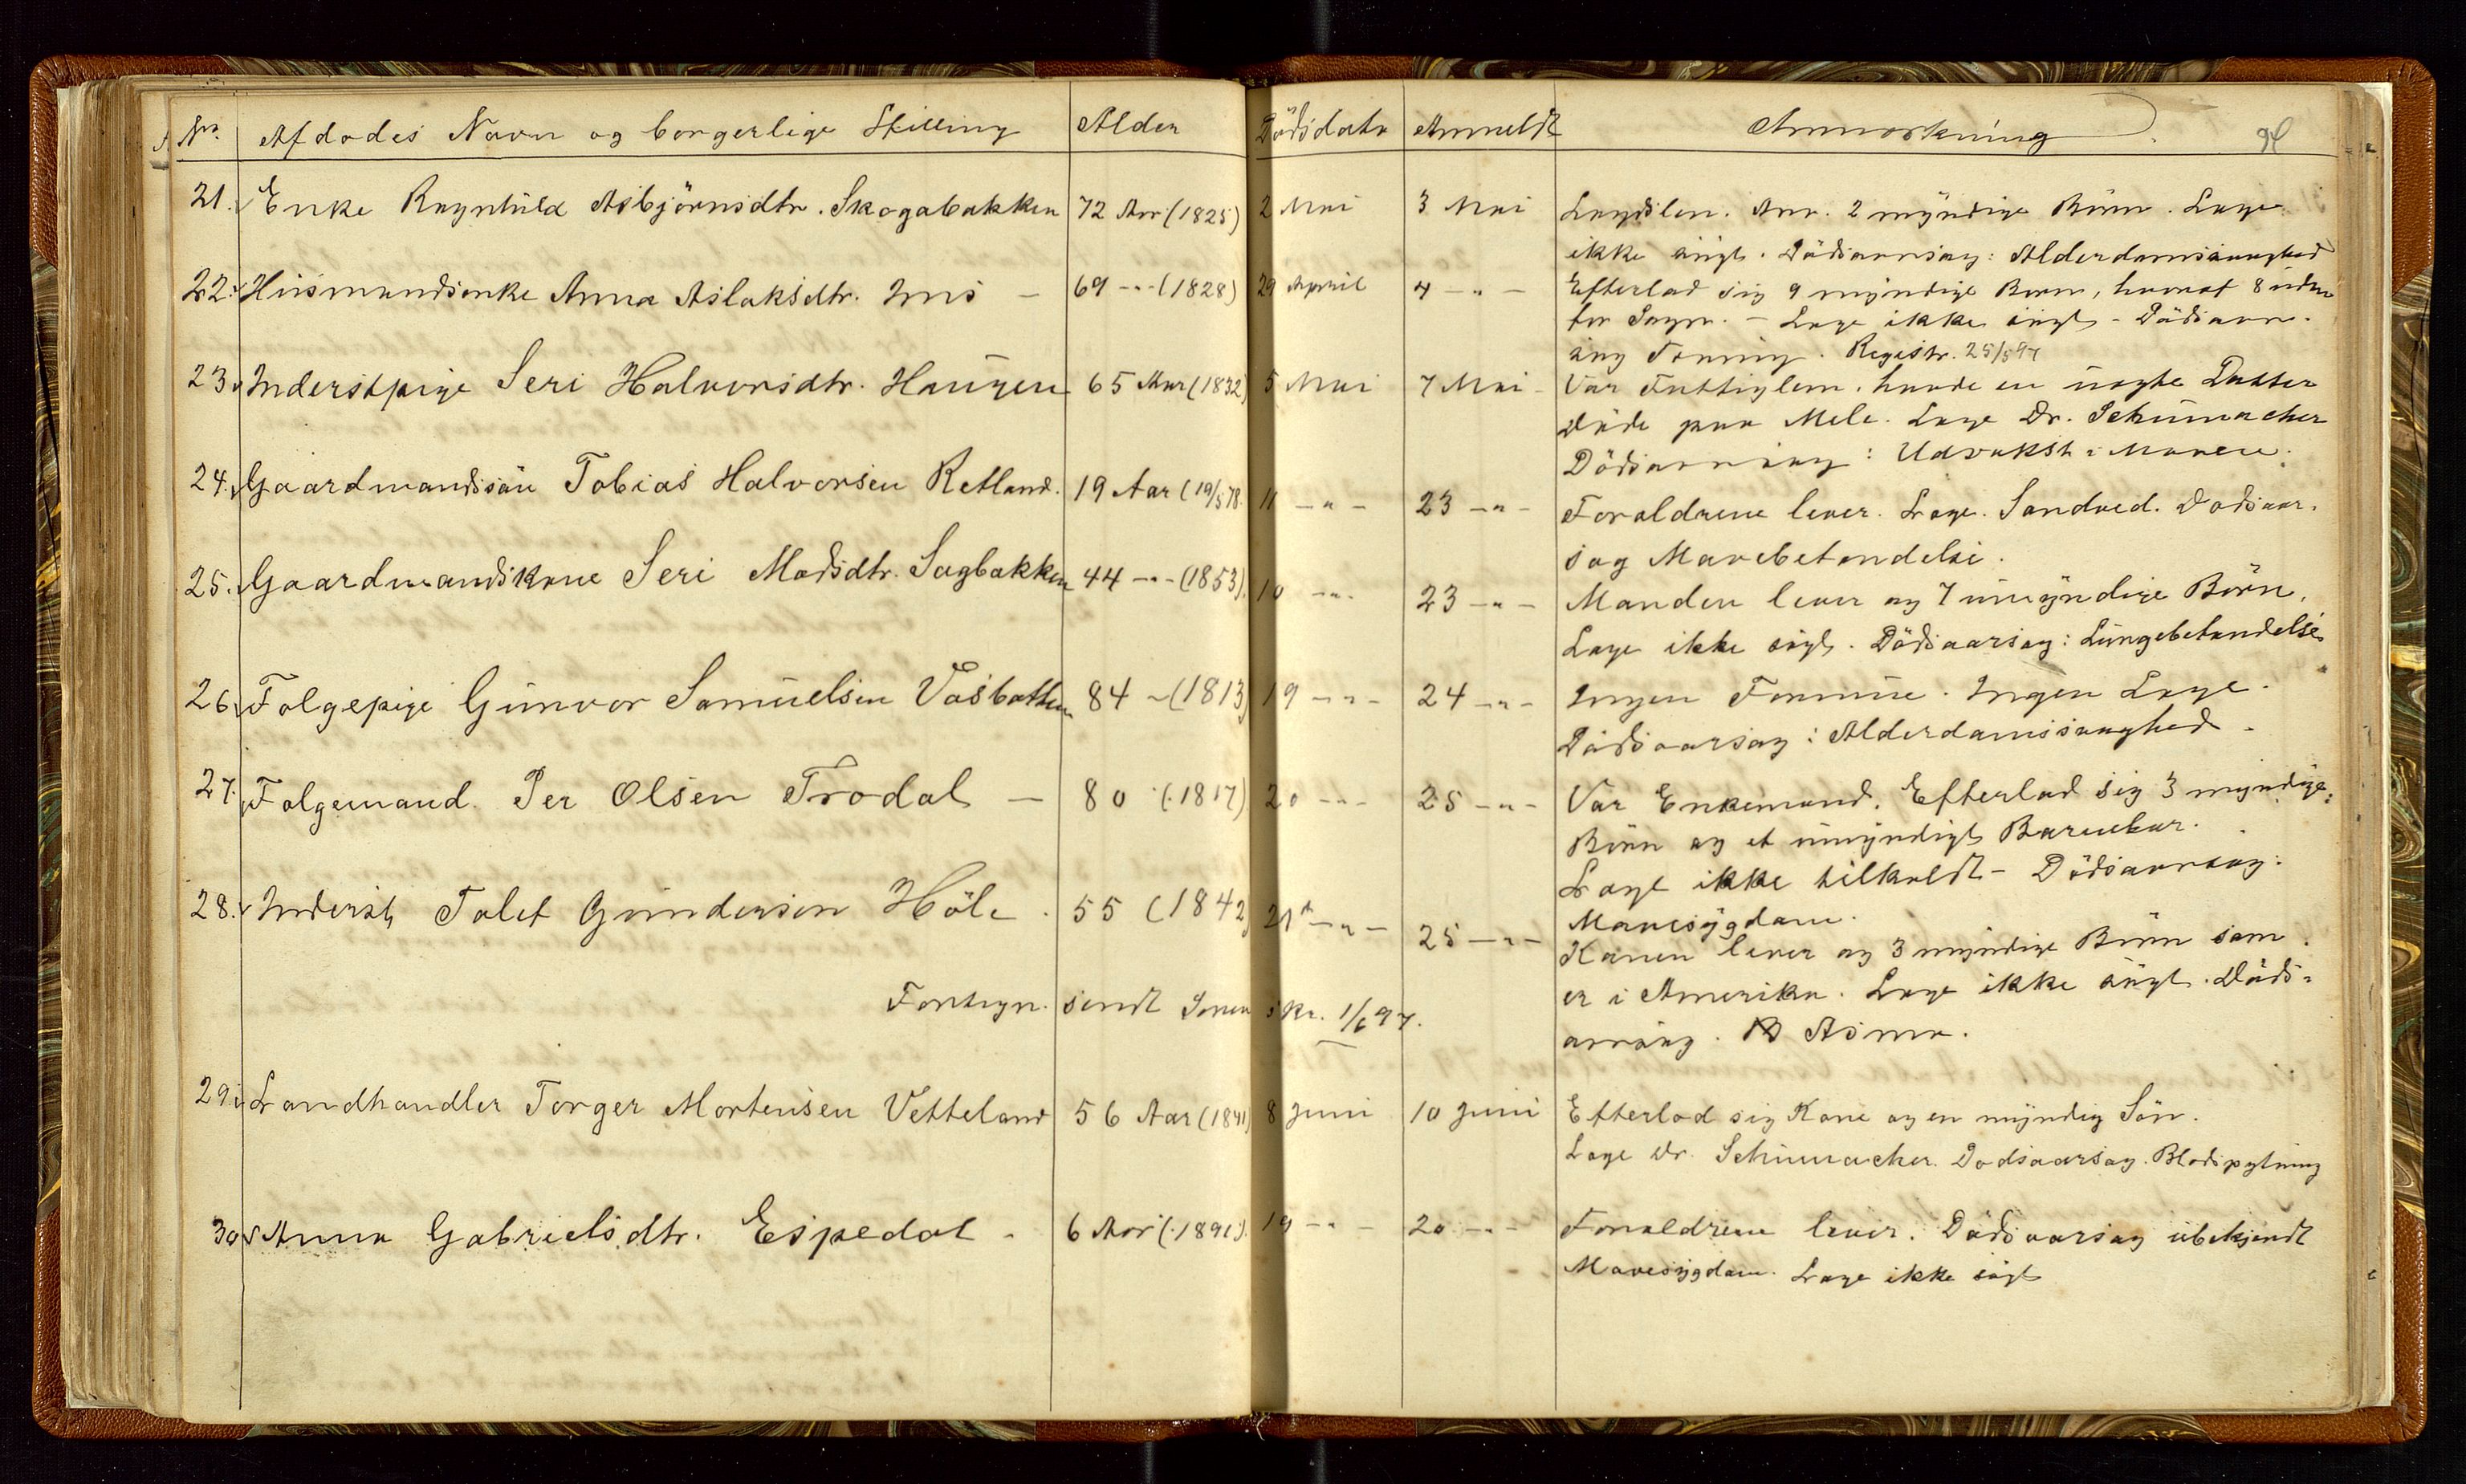 No. Afdødes Navn og borgerlige Stilling Alder Dödsdato Anmeldt Anmærkning 94
21. Enke Ragnhild Asbjörnsdtr. Skogabakken 72 Aar (1825) 2 Mai 3 Mai Lægdslem. Arv. 2 myndige Börn. Læge
ikke sögt. Dödsaarsag: Alderdomssvaghed
22. Husmandsenke Anna Aslaksdtr. Ims – 69 -"- (1828) 29 April 4 -"- Efterlod sig 9 myndige Börn, hvoraf 8 uden
for Sogn. – Læge ikke sögt – Dödsaar-
sag Tæring. Registr. 25/5 97
23. Inderstpige Seri Halvorsdtr. Haugen 65 Aar (1832) 5 Mai 7 Mai – Var Fattiglem. havde en uægte Datter
Döde paa Mele. Læge Dr. Schumacher
Dödsaarsag: Udvækst i Maven.
24. Gaardmandssön Tobias Halvorsen Retland. 19 Aar (19/5 78. 11 -"- 23 -"- Forældrene lever. Læge. Sandved. Dødsaar-
sag Mavebetændelse.
25. Gaardmandskone Seri Madsdtr. Sagbakken 44 -"- (1853). 10 -"- 23 -"- Manden lever og 7 umyndige Börn.
Læge ikke sögt. Dödsaarsag: Lungebetændelse
26. Følgepige Gunvor Samuelsen Vasbotten 84 – (1813) 19 -"- 24 -"- Ingen Formue. Ingen Læge.
Dödsaarsag: Alderdomssvaghed.
27. Følgemand. Per Olsen Frødal – 80 (1817) 20 -"- 25 -"- Var Enkemand. Efterlod sig 3 myndige
Börn og et umyndigt Barnebar.
Læge ikke tilkaldt – Dödsaarsag:
Mavesygdom.
28. Inderst Tolet Gundersen Höle. 55 (1842) 21 -"- 25 -"- Konen lever og 3 myndige Börn som
er i Amerika. Læge ikke sögt. Döds-
aarsag. Asma.
Fortegn. sendt Soren skr. 1/6 97.
29. Landhandler Torger Mortensen Vetteland 56 Aar (1841) 8 Juni 10 Juni Efterlod sig Kone og en myndig Sön.
Læge Dr. Schumacher. Dødsaarsag. Blodspytning
30. Anna Gabrielsdtr. Espedal – 6 Aar (1891). 19 -"- 20 -"- Forældrene lever. Dödsaarsag ubekjendt
Mavesygdom. Læge ikke sögt